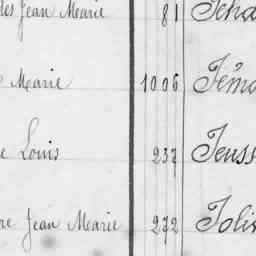 les Jean Marie 81 Jeha
Marie 1006 Jémo
e Louis 237 Jeuss
re Jean Marie 272 Joli